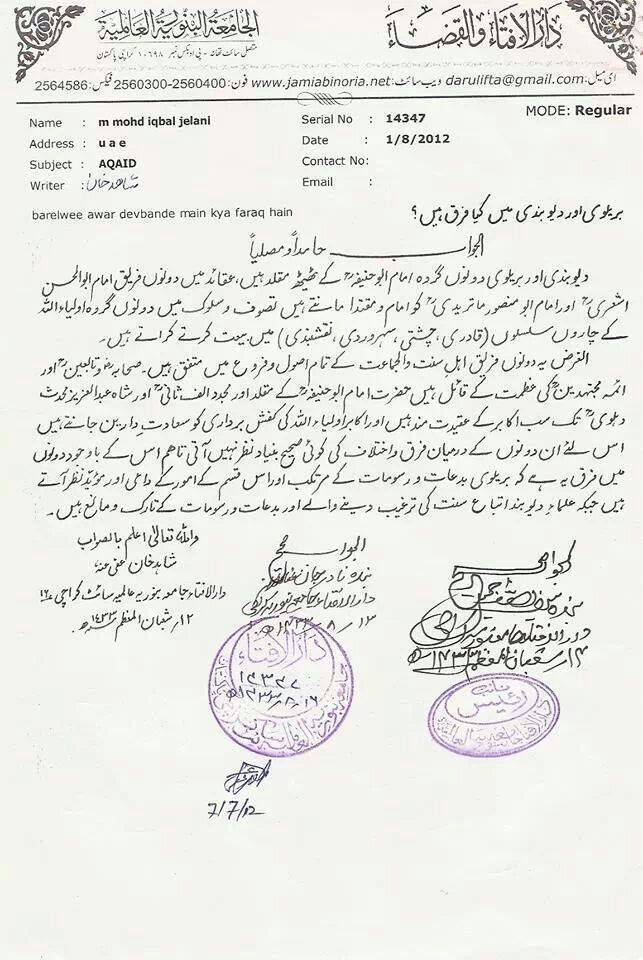 دارالافتاء والقضاء
الجامعة البنورية العالمية
متصل سائٹ تھانہ - پی او بکس نمبر ۱۰۶۹۸ کراچی پاکستان
ای میل: darulifta@gmail.com ویب سائٹ: www.jamiabinoria.net فون: 2560300-2560400 فیکس: 2564586
MODE: Regular
Name : m mohd iqbal jelani
Serial No : 14347
Address : u a e
Date : 1/8/2012
Subject : AQAID
Contact No:
Writer : شاهد خان
Email :
barelwee awar devbande main kya faraq hain
بریلوی اور دیوبندی میں کیا فرق ہیں؟
الجواب حامداً ومصلیاً
دیوبندی اور بریلوی دونوں گروہ امام ابوحنیفہؒ کے ٹھیٹھ مقلد ہیں، عقائد میں دونوں فریق امام ابوالحسن
اشعریؒ اور امام ابو منصور ماتریدیؒ کو امام و مقتدا مانتے ہیں تصوف و سلوک میں دونوں گروہ اولیاء اللہ
کے چاروں سلسلوں (قادری، چشتی، سہروردی، نقشبندی) میں بیعت کرتے کراتے ہیں۔
الغرض یہ دونوں فریق اہل سنت والجماعت کے تمام اصول و فروع میں متفق ہیں۔ صحابہؓ و تابعینؒ اور
ائمہ مجتہدینؒ کی عظمت کے قائل ہیں حضرت امام ابوحنیفہؒ کے مقلد اور مجدد الف ثانیؒ اور شاہ عبدالعزیز محدث
دہلویؒ تک سب اکابر کے عقیدت مند ہیں اور اکابر اولیاء اللہ کی کفش برداری کو سعادتِ دارین جانتے ہیں
اس لئے ان دونوں کے درمیان فرق و اختلاف کی کوئی صحیح بنیاد نظر نہیں آتی تاہم اس کے باوجود دونوں
میں فرق یہ ہے کہ بریلوی بدعات و رسومات کے مرتکب اور اس قسم کے امور کے داعی اور مؤید نظر آتے
ہیں جبکہ علماءِ دیوبند اتباعِ سنت کی ترغیب دینے والے اور بدعات و رسومات کے تارک و مانع ہیں۔
واللہ تعالیٰ اعلم بالصواب
شاہد خان عفی عنہ
دارالافتاء جامعہ بنوریہ عالمیہ سائٹ کراچی ۱۶
۱۲ / شعبان المعظم ۱۴۳۳ھ
الجواب صحیح
بندہ نادر جان
دارالافتاء جامعہ بنوریہ کراچی
۱۳ / ۸ / ۱۴۳۳ھ
الجواب صحیح
دارالافتاء جامعہ بنوریہ
۱۲ / شعبان المعظم ۱۴۳۳ھ
دارالافتاء
۱۴۳۴۷
رئیس
7/7/12